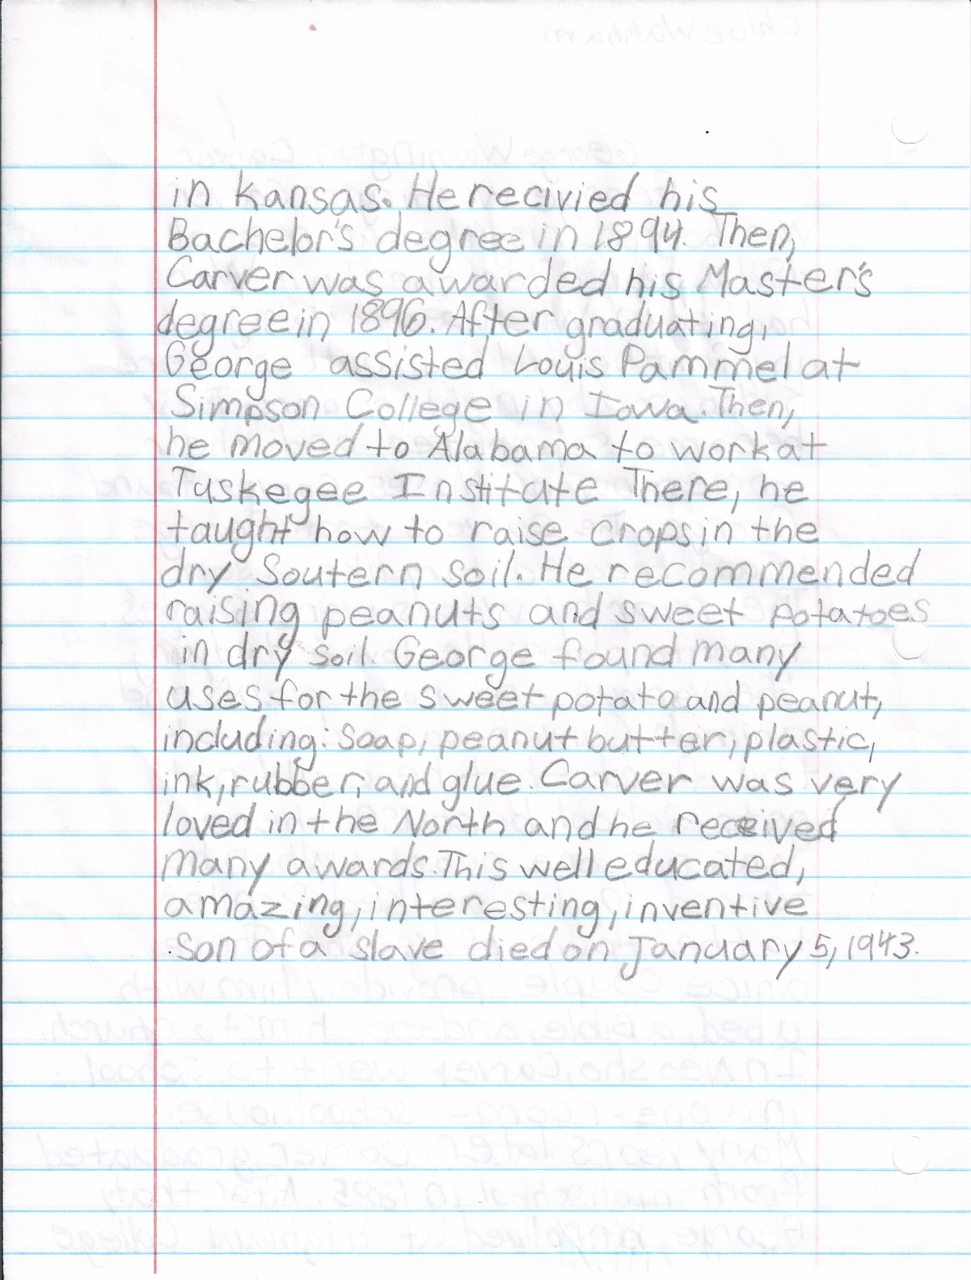 in Kansas. He recivied his
Bachelor's degree in 1894. Then,
Carver was awarded his Master's
degree in 1896. After graduating,
George assisted Louis Pammel at
Simpson College in Iowa. Then,
he moved to Alabama to work at
Tuskegee Institute There, he
taught how to raise crops in the
dry Soutern soil. He recommended
raising peanuts and sweet potatoes
in dry soil. George found many
uses for the sweet potato and peanut,
including: soap, peanut butter, plastic,
ink, rubber, and glue. Carver was very
loved in the North and he received
many awards. This well educated,
amazing, interesting, inventive
son of a slave died on January 5, 1943.